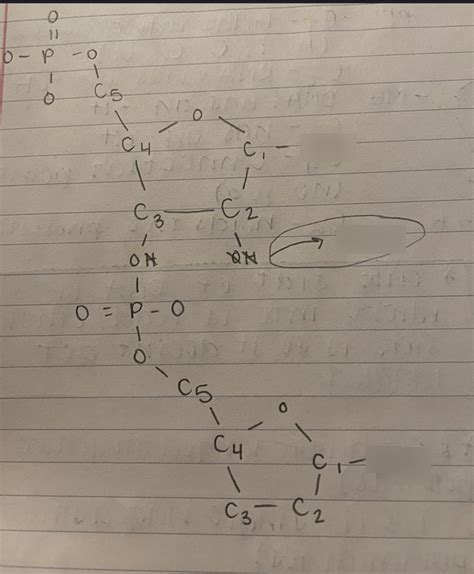 O
O - P - O
O C5
O
C4 C1 -
C3 — C2
OH OH
O = P - O
O
C5
O
C4
C1 -
C3 - C2